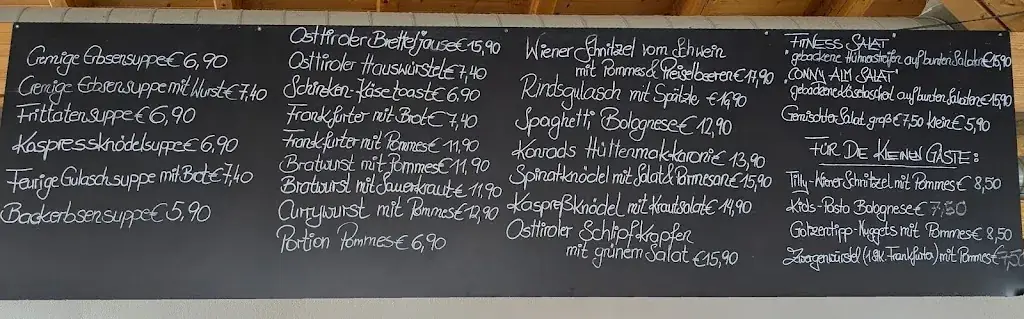 Cremige Erbsensuppe € 6,90
Cremige Erbsensuppe mit Wurst € 7,40
Frittatensuppe € 6,90
Kaspressknödelsuppe € 6,90
Feurige Gulaschsuppe mit Brot € 7,40
Backerbsensuppe € 5,90
Osttiroler Bretteljause € 15,90
Osttiroler Hauswürstel € 7,40
Schinken-Käsetoast € 6,90
Frankfurter mit Brot € 7,40
Frankfurter mit Pommes € 11,90
Bratwurst mit Pommes € 11,90
Bratwurst mit Sauerkraut € 11,90
Currywurst mit Pommes € 12,90
Portion Pommes € 6,90
Wiener Schnitzel vom Schwein
mit Pommes & Preiselbeeren € 17,90
Rindsgulasch mit Spätzle € 16,90
Spaghetti Bolognese € 12,90
Konrads Hüttenmakkaroni € 13,90
Spinatknödel mit Salat & Parmesan € 15,90
Kaspreßknödel mit Krautsalat € 14,90
Osttiroler Schlipfkrapfen
mit grünem Salat € 15,90
"FITNESS SALAT"
gebackene Hühnerstreifen auf bunten Salaten € 15,90
"CONNY ALM SALAT"
gebackene Käsetascherl auf bunten Salaten € 15,90
Gemischter Salat groß € 7,50 klein € 5,90
FÜR DIE KLEINEN GÄSTE:
Tilly-Wiener Schnitzel mit Pommes € 8,50
Kids-Pasta Bolognese € 7,50
Gotzentipp-Nuggets mit Pommes € 8,50
Zwergenwürstel (1 Stk. Frankfurter) mit Pommes € 7,50